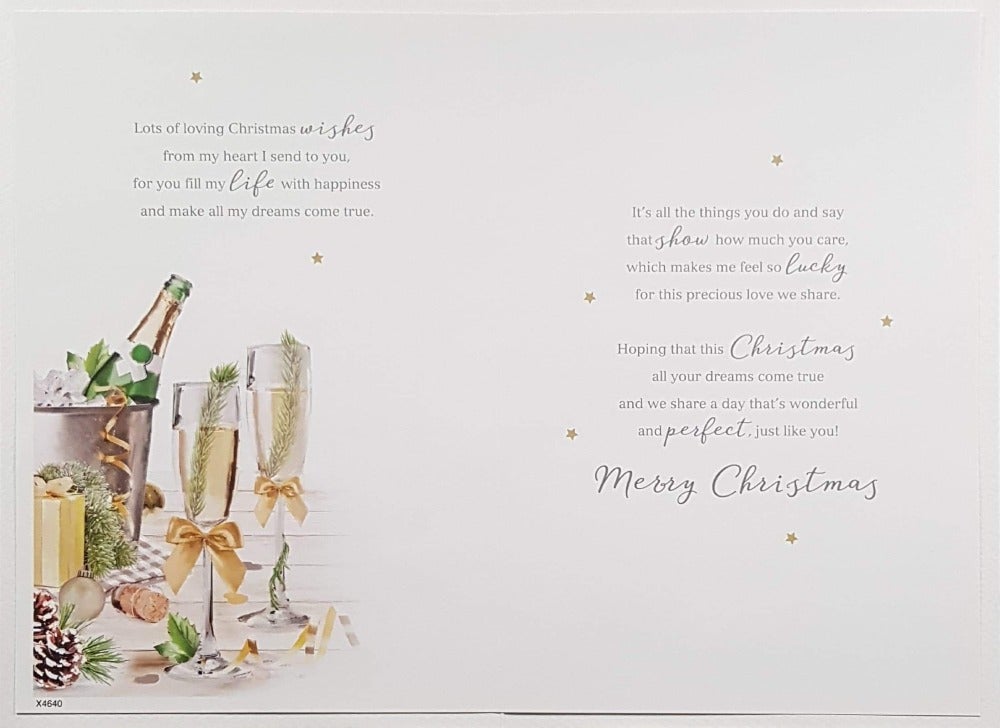 Lots of loving Christmas wishes
from my heart I send to you,
for you fill my life with happiness
and make all my dreams come true.
X4640
It's all the things you do and say
that show how much you care,
which makes me feel so lucky
for this precious love we share.
Hoping that this Christmas
all your dreams come true
and we share a day that's wonderful
and perfect, just like you!
Merry Christmas